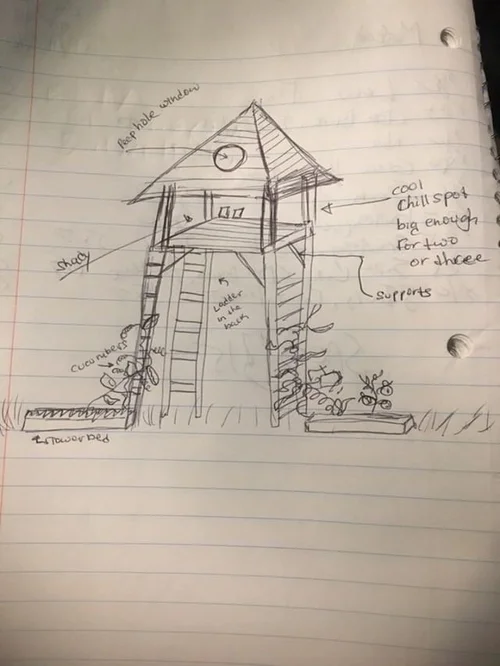 Peep hole window
cool
chill spot
big enough
for two
or three
shady
supports
Ladder
in the
back
cucumbers
flower bed